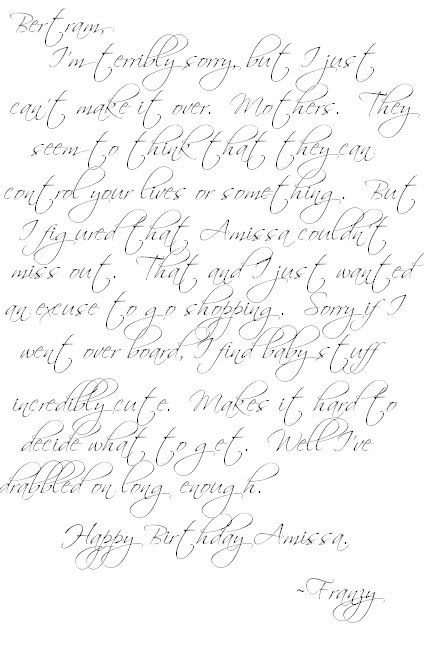 Bertram,
I'm terribly sorry, but I just
can't make it over. Mothers. They
seem to think that they can
control your lives or something. But
I figured that Amissa couldn't
miss out. That and I just wanted
an excuse to go shopping. Sorry if I
went over board, I find baby stuff
incredibly cute. Makes it hard to
decide what to get. Well I've
drabbled on long enough.
Happy Birthday Amissa.
~Franzy